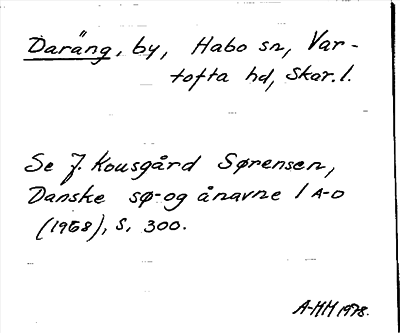 Daräng, by, Habo sn, Var-
tofta hd, Skar. l.
Se J. Kousgård Sørensen,
Danske sø- og ånavne 1 A-D
(1968), s. 300.
A-MM 1978.